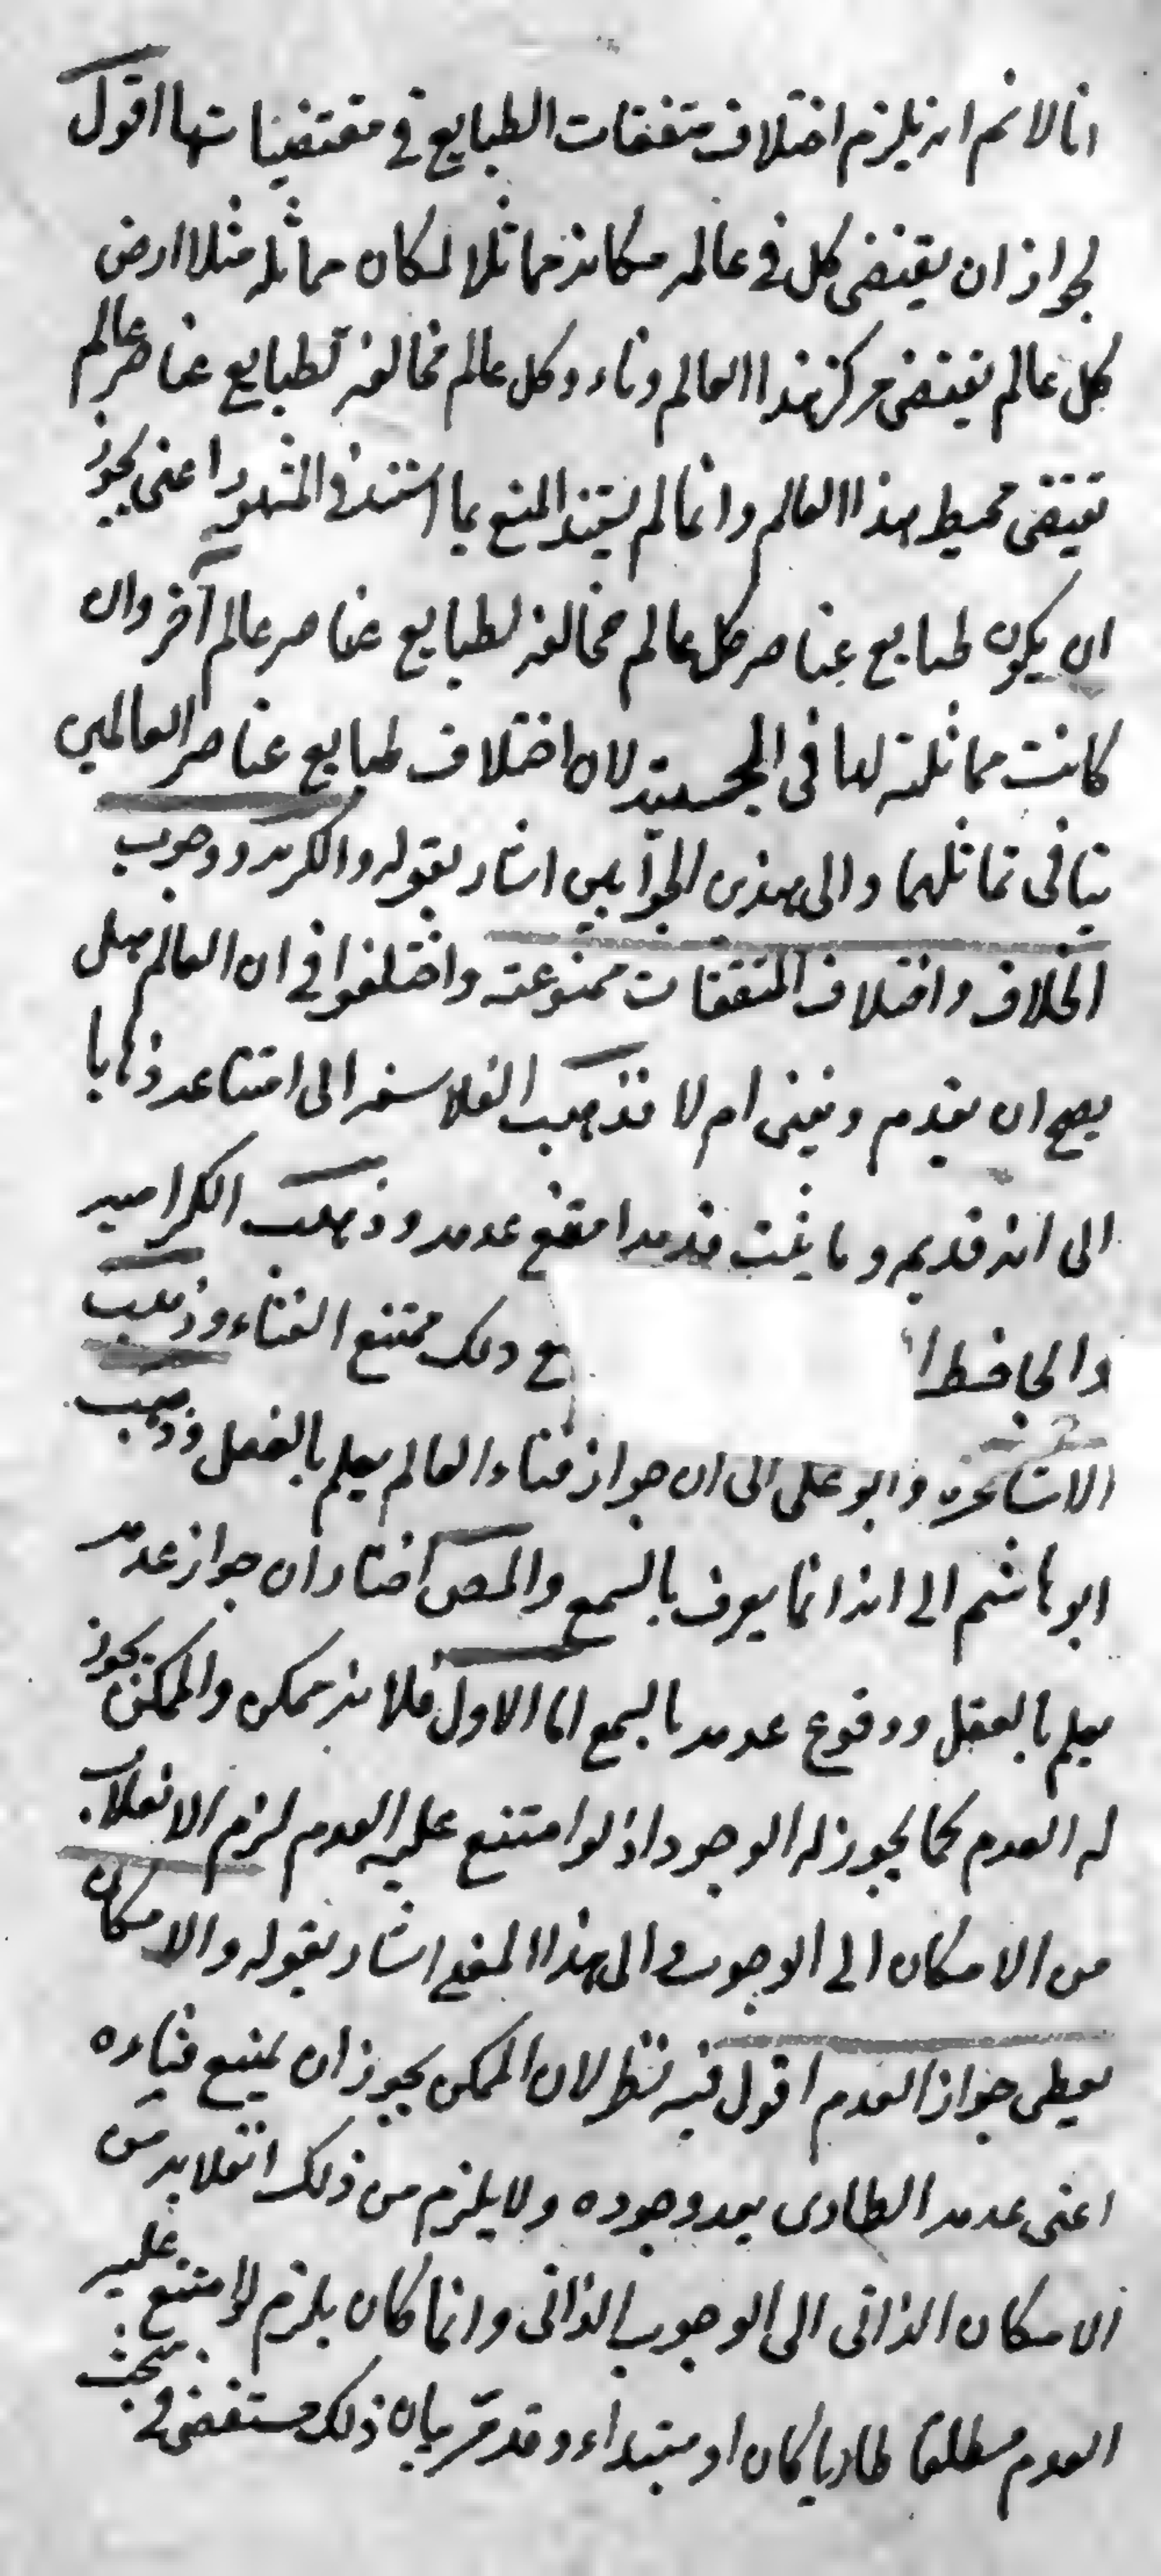 انا لا نم انه يلزم اختلاف متفقات الطبايع في مقتضياتها اقول
لجواز ان يقتضى كل في عالمه مكانه مماثلا لمكان مماثله مثلا ارض
كل عالم يقتضى مركز هذا العالم وناء وكل عالم مخالفه لطبايع عناصر عالم
تقتضى محيط هذا العالم وانما لم يسند المنع بما استند في المشهور اعنى يجوز
ان يكون طبايع عناصر كل عالم مخالفه لطبايع عناصر عالم آخر وان
كانت مماثلة لها في الجسمية لان اختلاف طبايع عناصر العالمين
ينافى تماثلهما والى هذين الجوابين اشار بقوله والكرية ووجوب
الخلاف واختلاف المتفقات ممنوعة واختلفوا في ان العالم هل
يصح ان يعدم ويفنى ام لا فذهب الفلاسفه الى امتناعه ذهابا
الى انه قديم وما يثبت قدمه امتنع عدمه وذهب الكراميه
والجاحظ ا ع ذلك ممتنع الفناء وذهب
الاشاعره وابو على الى ان جواز فناء العالم يعلم بالعقل وذهب
ابو هاشم الى انه انما يعرف بالسمع والمص اختار ان جواز عدمه
يعلم بالعقل ووقوع عدمه بالسمع اما الاول فلانه ممكن والممكن يجوز
له العدم كما يجوز له الوجود اذ لو امتنع عليه العدم لزم الانقلاب
من الامكان الى الوجوب والى هذا المعنى اشار بقوله والامكان
يعطى جواز العدم اقول فيه نظر لان الممكن يجوز ان يمتنع فناءه
اعنى عدمه الطارى بعد وجوده ولا يلزم من ذلك انقلابه من
الامكان الذاتى الى الوجوب الذاتى وانما كان يلزم لو امتنع عليه
العدم مطلقا طاريا كان او مبتداء وقد مر بيان ذلك مستقصى في مبحث